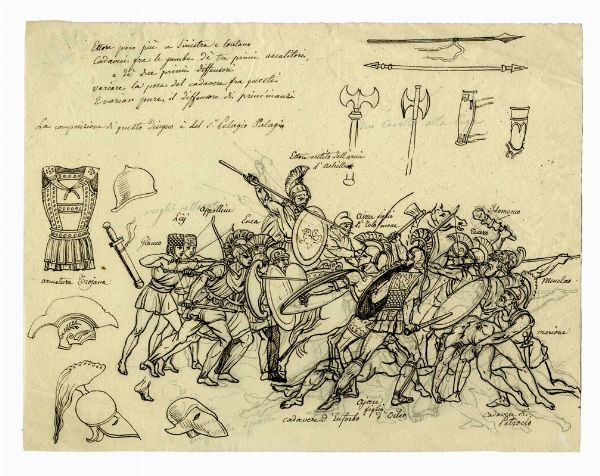 Ettore poco più a sinistra e lontano
Cadaveri fra le gambe de tre primi assalitori,
e de due primi diffensori
variare la posa del cadavere fra questi
E variar pure il diffensore di prim'innanzi
La composizione di questo disegno è del Sr Pelagio Palagi
Ettore vestito dell'armi
d'Achille
Ajace figlio
di Telamone
Idomeneo
Teucro
Appolline
Enea
Glauco
Menelao
merione
armatura Trojana
Ajace
figlio
d'Oileo
cadavere d'Euforbo
cadavere di
Patroclo